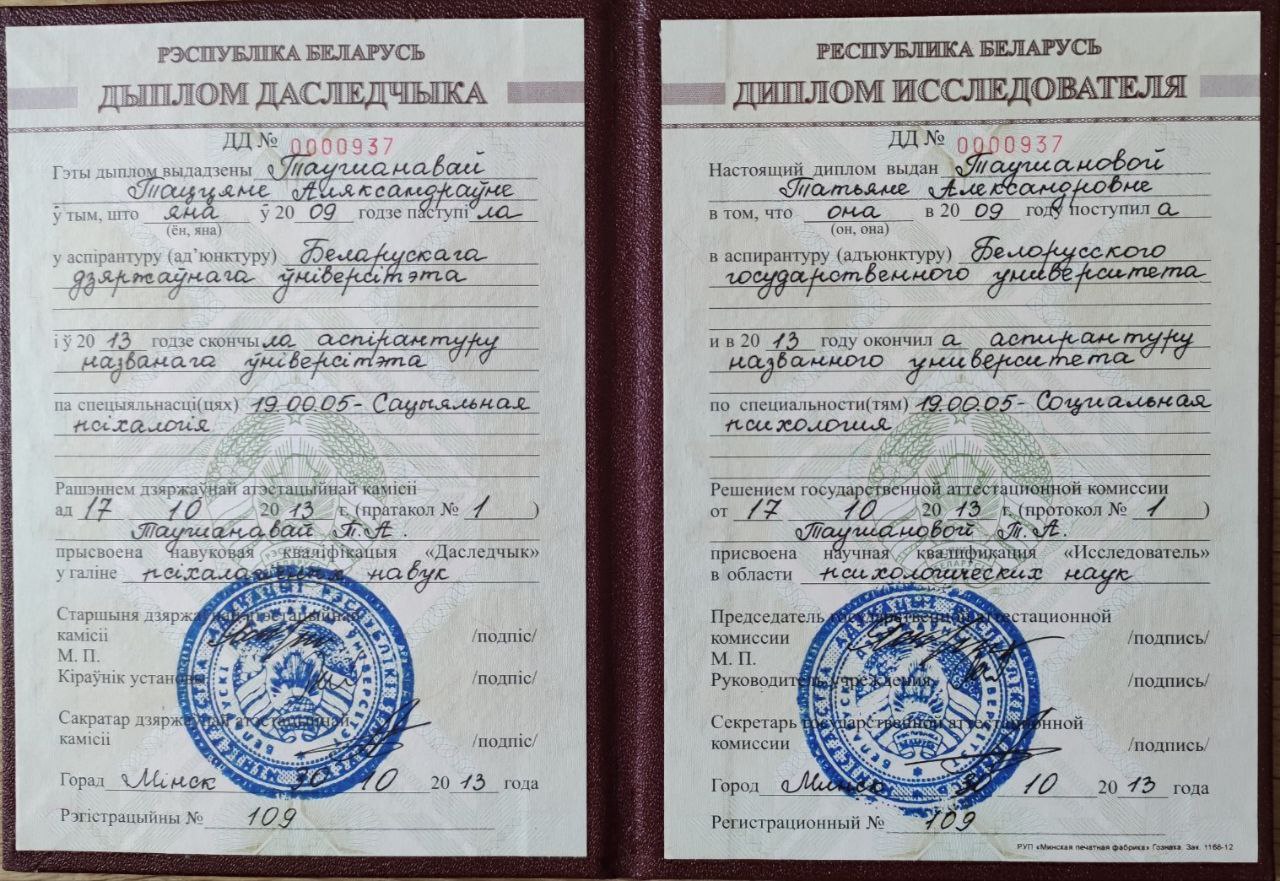 РЭСПУБЛІКА БЕЛАРУСЬ
ДЫПЛОМ ДАСЛЕДЧЫКА
ДД № 0000937
Гэты дыплом выдадзены Таушанавай
Таццяне Аляксандраўне
ў тым, што яна ў 20 09 годзе паступі ла
(ён, яна)
у аспірантуру (ад'юнктуру) Беларускага
дзяржаўнага ўніверсітэта
і ў 20 13 годзе скончы ла аспірантуру
названага ўніверсітэта
па спецыяльнасці(цях) 19.00.05 - Сацыяльная
псіхалогія
Рашэннем дзяржаўнай атэстацыйнай камісіі
ад 17 10 20 13 г. (пратакол № 1 )
Таушанавай Т.А.
прысвоена навуковая кваліфікацыя «Даследчык»
у галіне псіхалагічных навук
Старшыня дзяржаўнай атэстацыйнай
камісіі /подпіс/
М. П.
Кіраўнік установы /подпіс/
Сакратар дзяржаўнай атэстацыйнай
камісіі /подпіс/
Горад Мінск 30 10 20 13 года
Рэгістрацыйны № 109
РЕСПУБЛИКА БЕЛАРУСЬ
ДИПЛОМ ИССЛЕДОВАТЕЛЯ
ДД № 0000937
Настоящий диплом выдан Таушановой
Татьяне Александровне
в том, что она в 20 09 году поступил а
(он, она)
в аспирантуру (адъюнктуру) Белорусского
государственного университета
и в 20 13 году окончил а аспирантуру
названного университета
по специальности(тям) 19.00.05 - Социальная
психология
Решением государственной аттестационной комиссии
от 17 10 20 13 г. (протокол № 1 )
Таушановой Т.А.
присвоена научная квалификация «Исследователь»
в области психологических наук
Председатель государственной аттестационной
комиссии /подпись/
М. П.
Руководитель учреждения /подпись/
Секретарь государственной аттестационной
комиссии /подпись/
Город Минск 30 10 20 13 года
Регистрационный № 109
РУП «Минская печатная фабрика» Гознака. Зак. 1168-12